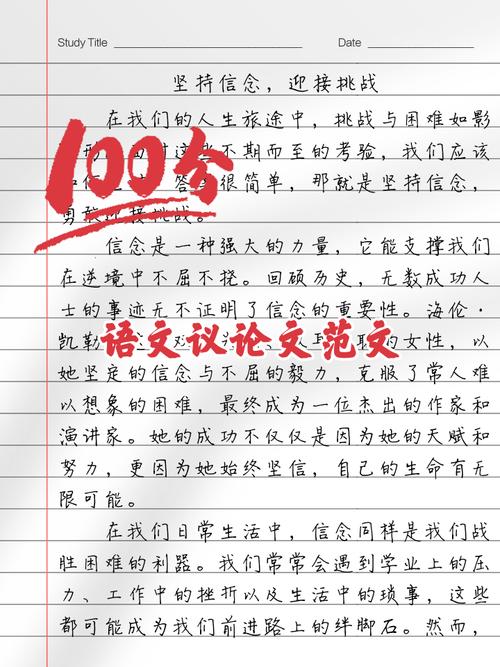 Study Title
Date
坚持信念，迎接挑战
在我们的人生旅途中，挑战与困难如影
100分
不期而至的考验，我们应该
很简单，那就是坚持信念，
勇敢迎接挑战。
信念是一种强大的力量，它能支撑我们
在逆境中不屈不挠。回顾历史，无数成功人
士的事迹无不证明了信念的重要性。海伦·
凯勒
的女性，以
语文议论文范文
她坚定的信念与不屈的毅力，克服了常人难
以想象的困难，最终成为一位杰出的作家和
演讲家。她的成功不仅仅是因为她的天赋和
努力，更因为她始终坚信，自己的生命有无
限可能。
在我们日常生活中，信念同样是我们战
胜困难的利器。我们常常会遇到学业上的压
力、工作中的挫折以及生活中的琐事，这些
都可能成为我们前进路上的绊脚石。然而，